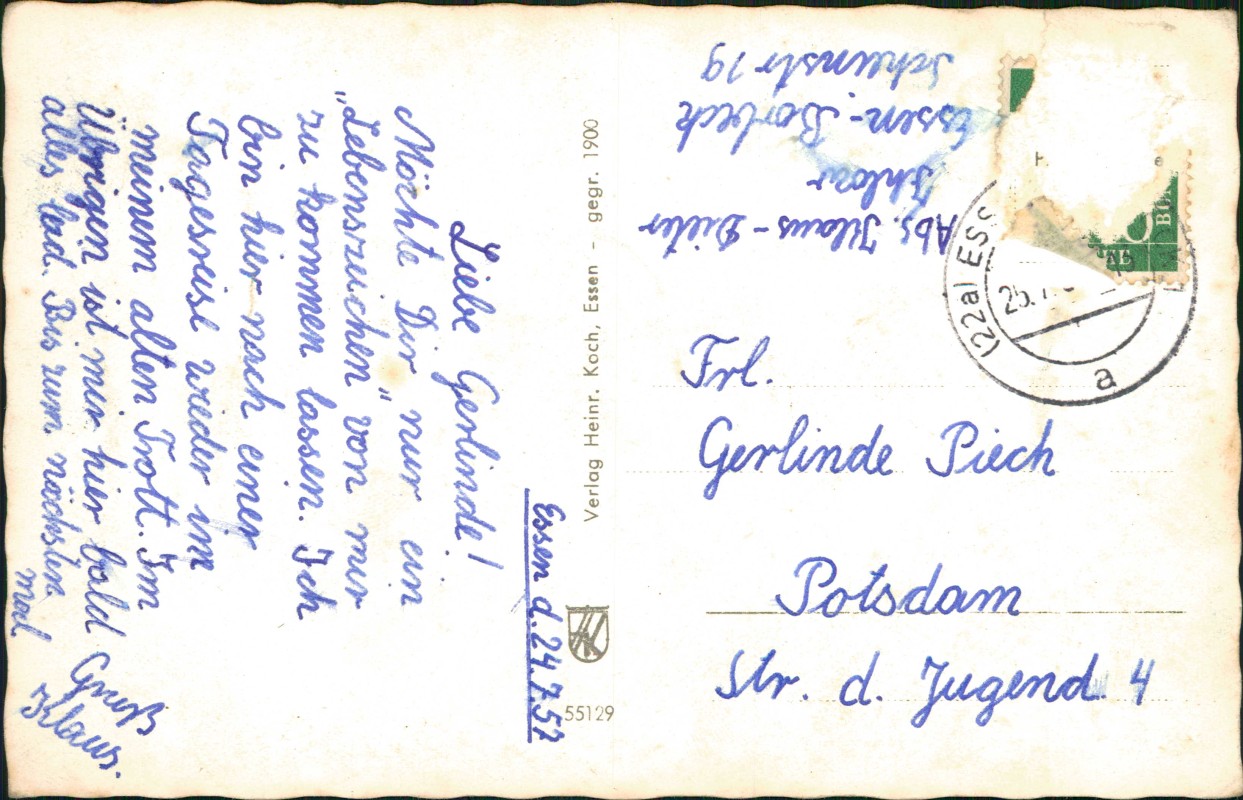 Essen d. 24.7.52
Liebe Gerlinde!
Möchte Dir nur ein
„Lebenszeichen" von mir
zu kommen lassen. Ich
bin hier nach einer
Tagesreise wieder im
meinem alten Trott. Im
Übrigen ist mir hier bald
alles leid. Bis zum nächsten
mal
Gruß
Klaus.
Verlag Heinr. Koch, Essen - gegr. 1900
55129
Abs. Klaus-Dieter
Essen-Borbeck
19
(22a) ESS
25.7.
a
Frl.
Gerlinde Piech
Potsdam
Str. d. Jugend 4